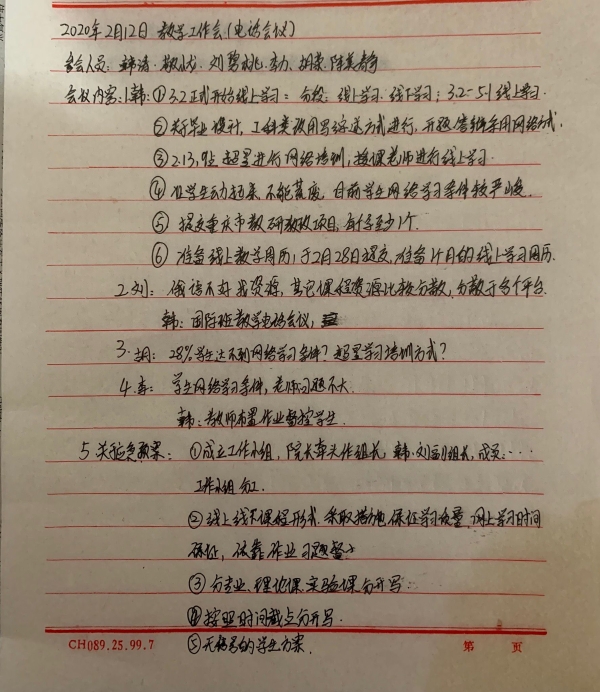 2020年2月12日 教学工作会(电话会议)
参会人员: 韩涛、敬成、刘碧桃、李力、胡荣、陈美静
会议内容:1.韩:①3.2正式开始线上学习:分段:线上学习、线下学习;3.2-5.1线上学习.
②关于毕业设计,工科类改用写综述方式进行,开题答辩采用网络方式.
③2.13,9点超星进行网络培训,授课老师进行线上学习.
④让学生动起来,不能荒废,目前学生网络学习条件较严峻.
⑤提交重庆市教研教改项目,每系至少1个.
⑥准备线上教学周历,于2月28日提交,准备1个月的线上学习周历.
2.刘:俄语不好找资源,其它课程资源比较分散,分散于各个平台.
韩:国际班教学电话会议,
3.胡:28%学生达不到网络学习条件?超星学习培训方式?
4.李:学生网络学习条件,老师问题不大.
韩:教师布置作业督控学生.
5.关于应急预案:①成立工作小组,院长牵头作组长,韩、刘副组长,成员:…
工作小组分工.
②线上线下课程形式,采取措施,保证学习质量,网上学习时间
保证,依靠作业习题督
③分专业、理论课、实验课分开写.
④按照时间截点分开写.
⑤无信号的学生方案.
CH089.25.99.7 第 页